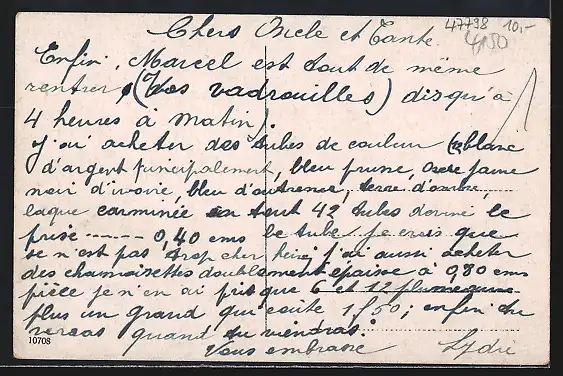 47798 10,-
4/50
Chers Oncle et Tante.
Enfin, Marcel est tout de même
rentrer, (Vos vadrouilles) disqu'à
4 heures à matin).
J'ai acheter des tubes de couleur (blanc
d'argent principalement, bleu prusse, Ocre jaune
noir d'ivoire, bleu d'outremer, terre d'ombre,
laque carminée en tout 42 tubes donné le
prise 0,40 cms le tube. je crois que
se n'est pas trop cher hein, j'ai aussi acheter
des chamoisettes doublement épaisse à 0,80 cms
pièce je n'en ai pris que 6 et 12
plus un grand qui coute 1f50; enfin tu
verras quand tu viendras.
Vous embrasse Lydie
10708